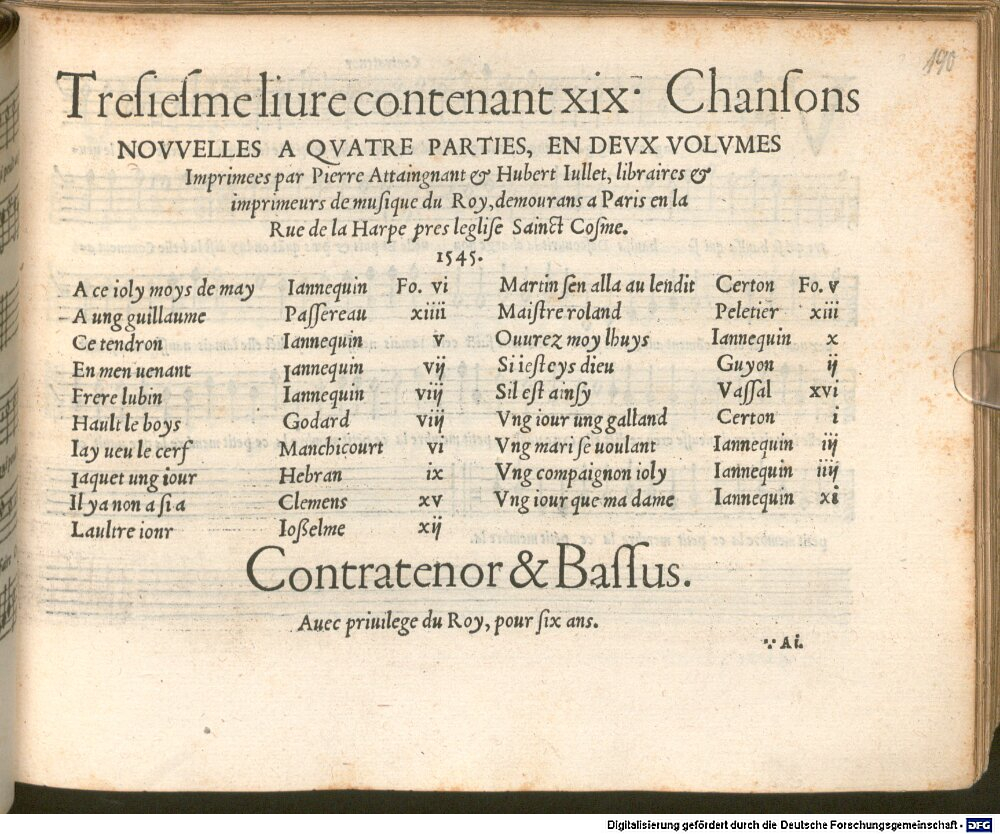 190
Treſieſme liure contenant xix· Chanſons
NOVVELLES A QVATRE PARTIES, EN DEVX VOLVMES
Imprimees par Pierre Attaingnant & Hubert Iullet, libraires &
imprimeurs de muſique du Roy, demourans a Paris en la
Rue de la Harpe pres legliſe Sainct Coſme.
1545.
A ce ioly moys de may Iannequin Fo. vi
A ung guillaume Paſſereau xiiii
Ce tendron Iannequin v
En men uenant Iannequin vij
Frere lubin Iannequin viij
Hault le boys Godard viij
Iay ueu le cerf Manchicourt vi
Iaquet ung iour Hebran ix
Il ya non a ſi a Clemens xv
Laultre iour Ioßelme xij
Martin ſen alla au lendit Certon Fo. v
Maiſtre roland Peletier xiii
Ouurez moy lhuys Iannequin x
Si ieſtoys dieu Guyon ij
Sil eſt ainſy Vaſſal xvi
Vng iour ung galland Certon i
Vng mari ſe uoulant Iannequin iij
Vng compaignon ioly Iannequin iiij
Vng iour que ma dame Iannequin xi
Contratenor & Baſſus.
Auec priuilege du Roy, pour ſix ans.
∵ A i.
Digitalisierung gefördert durch die Deutsche Forschungsgemeinschaft - DFG